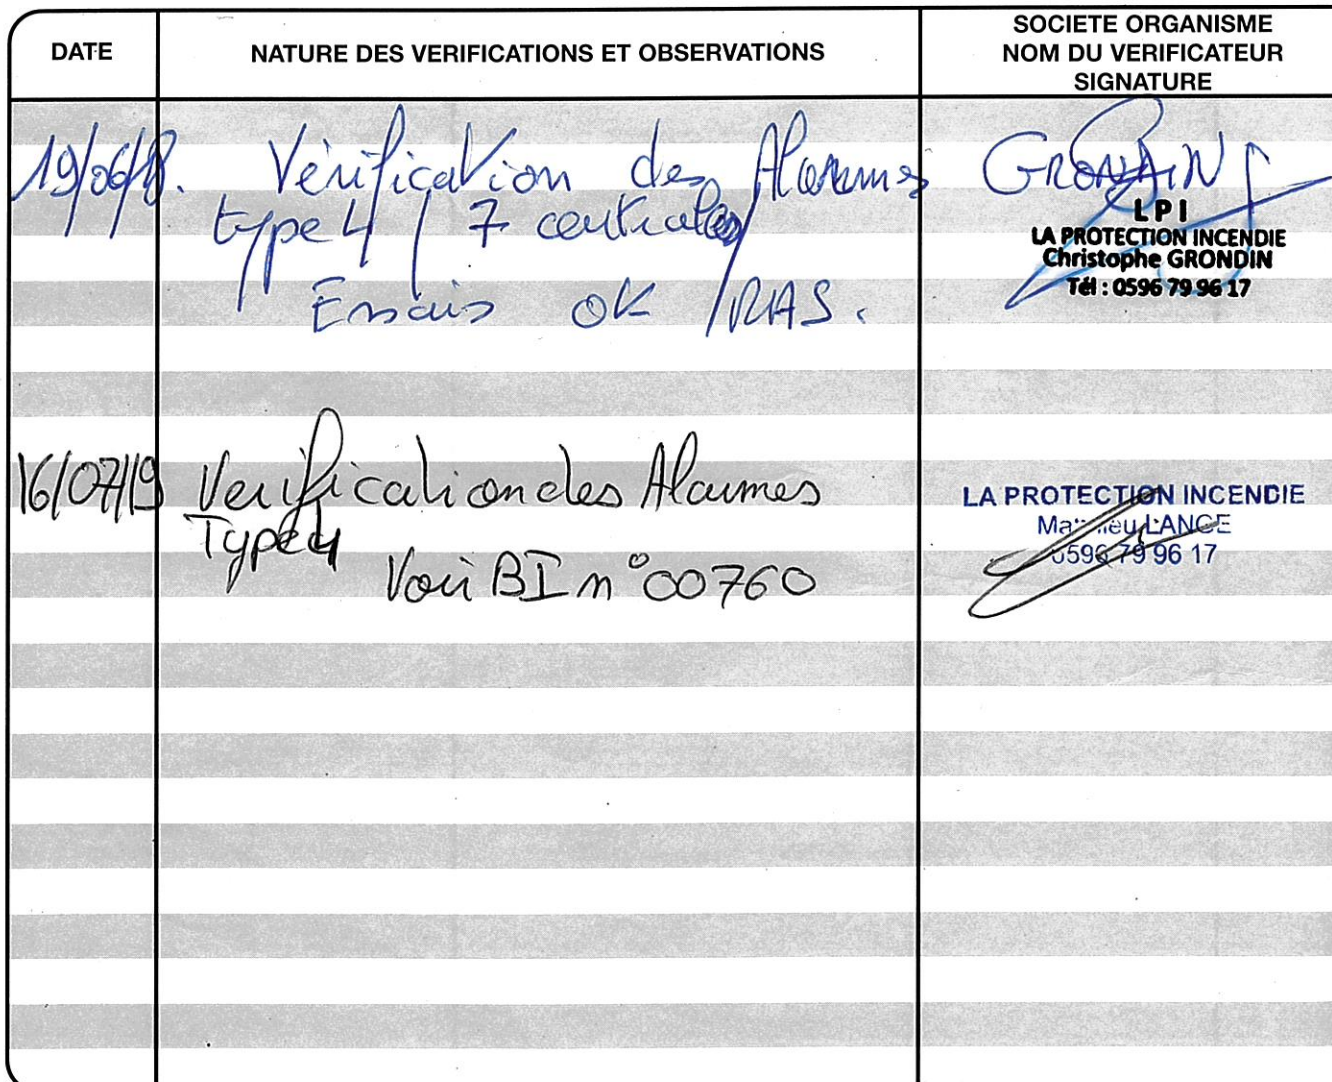 DATE
NATURE DES VERIFICATIONS ET OBSERVATIONS
SOCIETE ORGANISME
NOM DU VERIFICATEUR
SIGNATURE
19/06/18. Vérification des Alarmes GRONDIN
type 4 / 7 centrales
Essais OK / RAS.
LPI
LA PROTECTION INCENDIE
Christophe GRONDIN
Tél : 0596 79 96 17
16/07/19 Verification des Alarmes
Type 4
Voir BI n° 00760
LA PROTECTION INCENDIE
Mathieu LANGE
0596 79 96 17